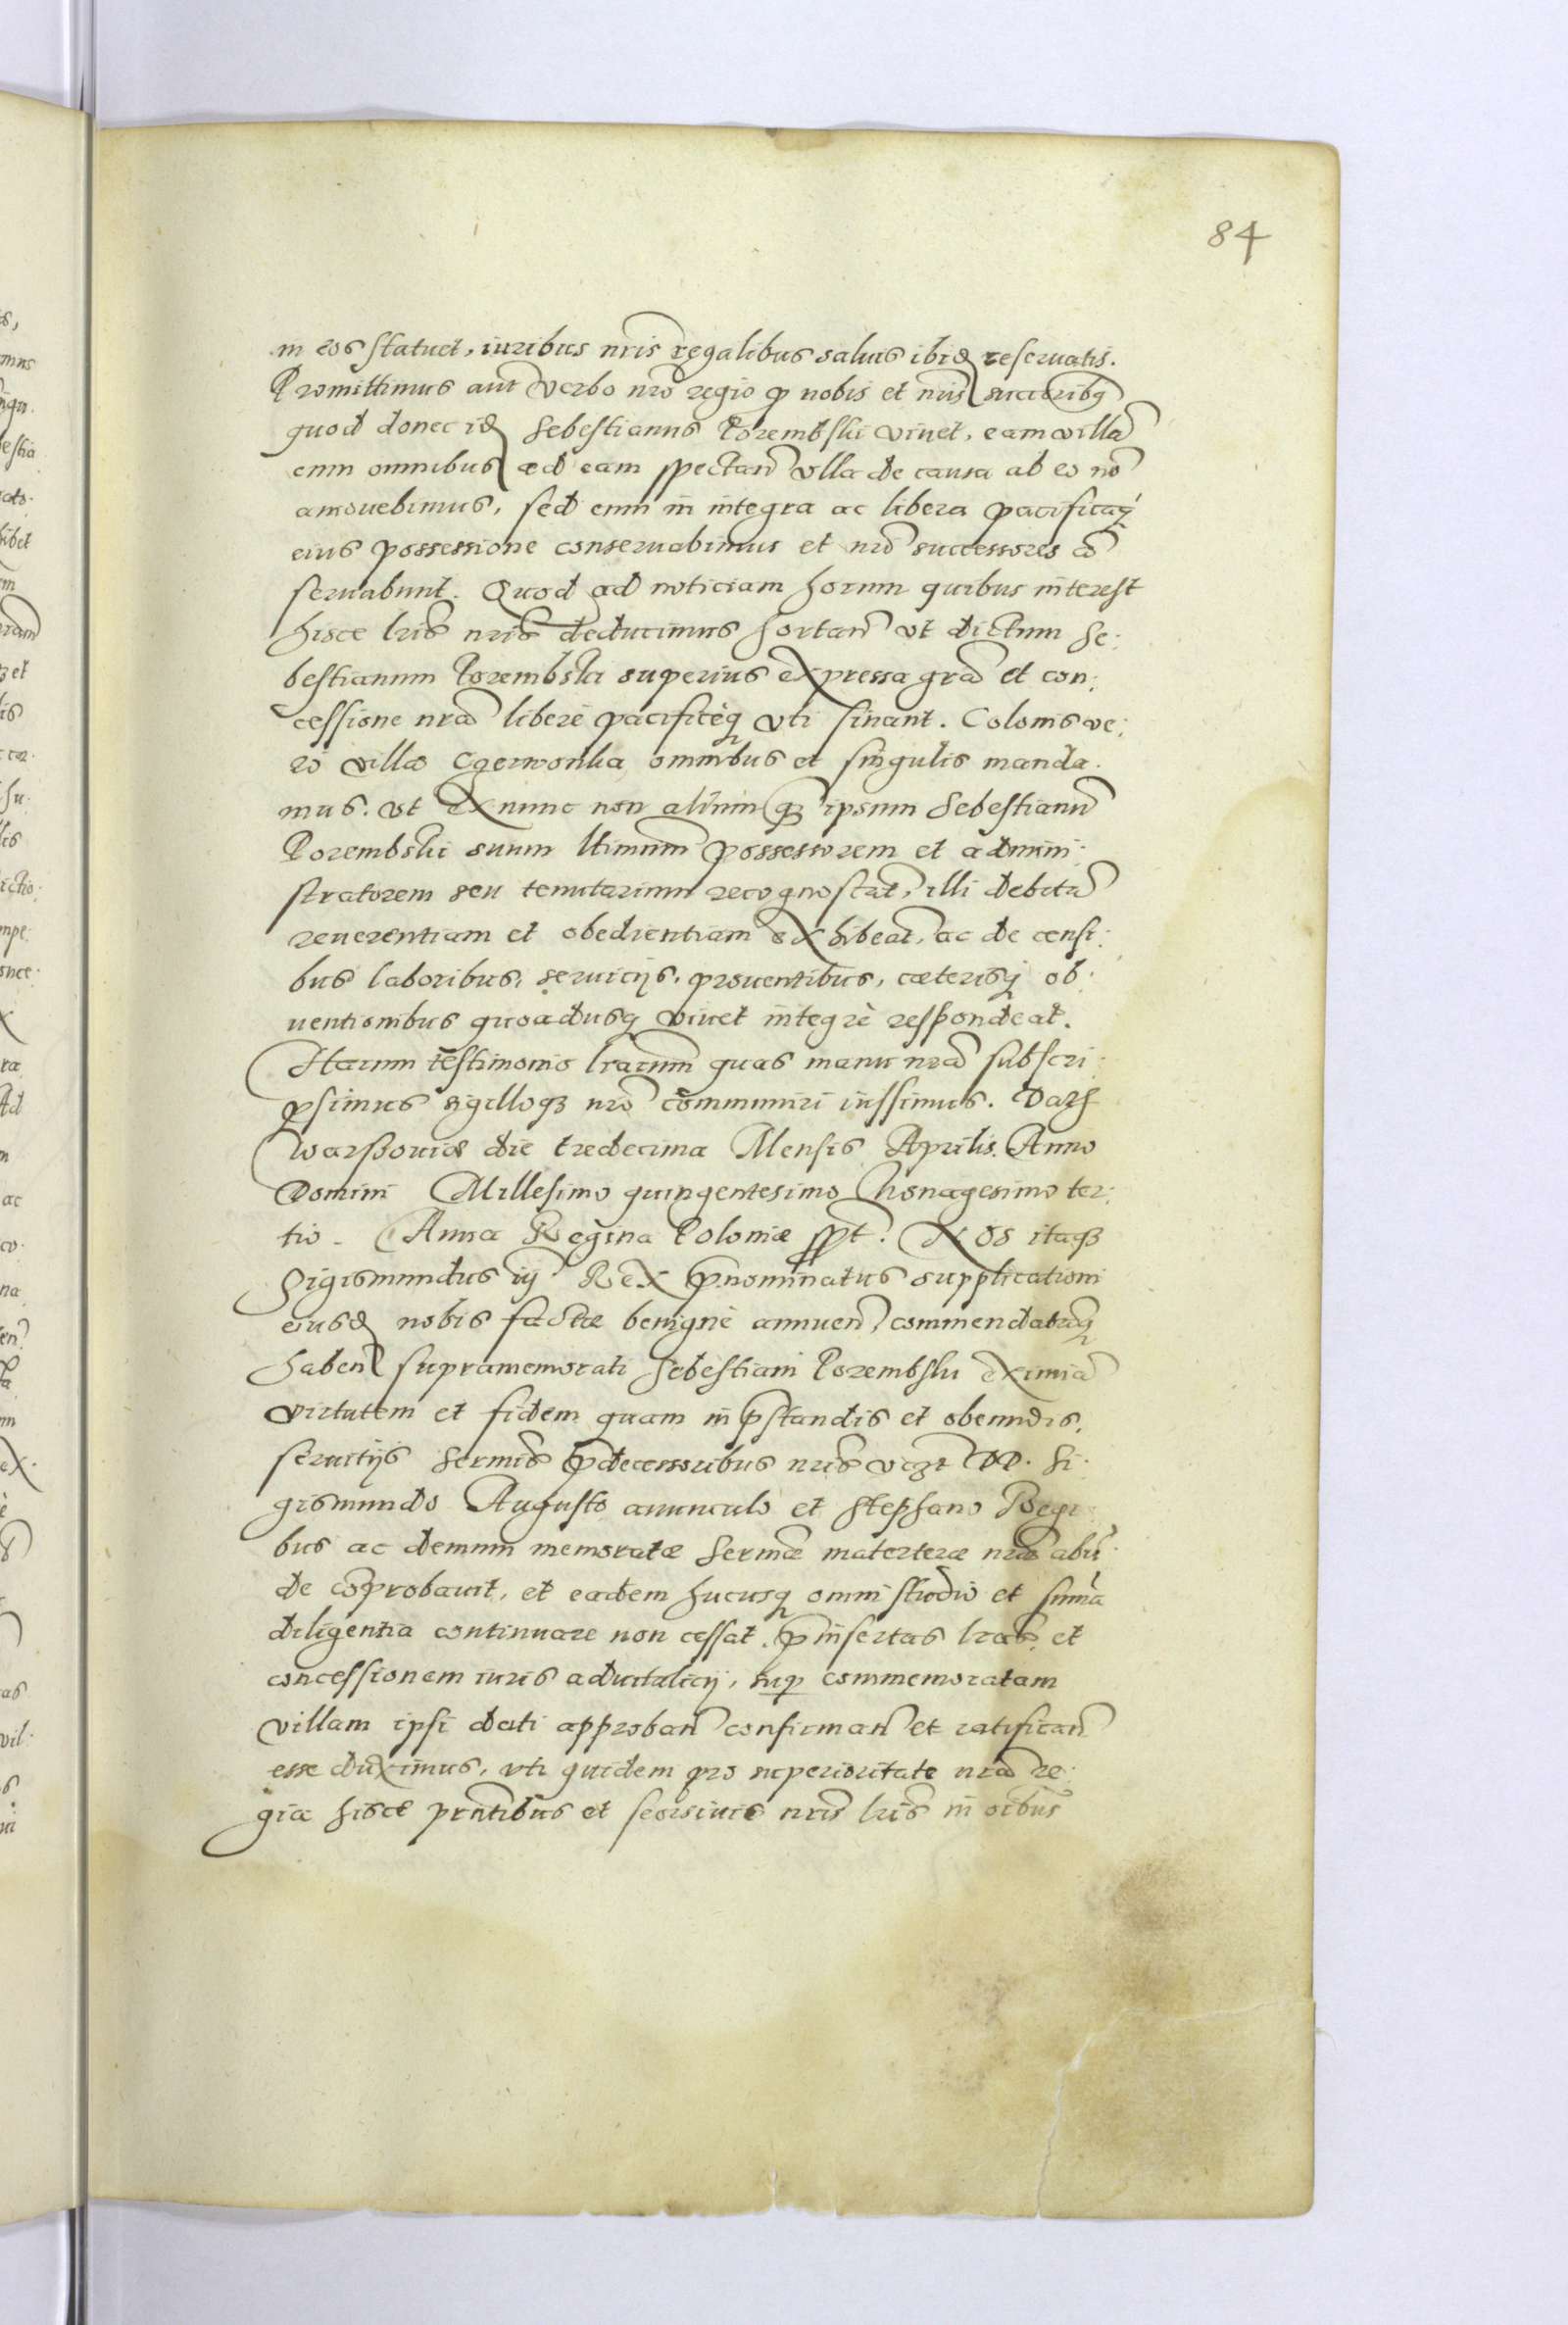 84
in eos statuet, iuribus nris regalibus saluis ibid reseruatis.
Promittimus aut verbo nro regio p nobis et nris succribq
quod donec id Sebestianus Porembski viuet, eam villa
cum omnibus ad eam spectan vlla de causa ab eo no
amouebimus, sed eum in integra ac libera pacificaq
eius possessione conseruabimus et nri successores co
seruabunt. Quod ad noticiam horum quibus interest
hisce lris nris deducimus hortan vt dictum Se:
bestianum Porembski superius expressa gra et con:
cessione nra liberè pacificèq vti sinant. Colonis ve:
rò villæ Czerwonka omnibus et singulis manda:
mus. vt ex nunc non alium qz ipsum Sebestianu
Porembski suum ltimum possessorem et admini:
stratorem seu tenutarium recognoscat, illi debita
reuerentiam et obedientiam exhibeat, ac de censi:
bus laboribus, seruicijs, prouentibus, cæterisq ob:
uentionibus quoadusq viuet integrè respondeat.
Harum testimonio lrarum quas manu nra subscri:
psimus sigilloqz nro communiri iussimus. Dat
Warßouiæ die tredecima Mensis Aprilis. Anno
Domini Millesimo quingentesimo Nonagesimo ter:
tio. Anna Regina Poloniæ sspt. Nos itaqz
Sigismundus iij Rex pnominatus supplicationi
eiusd nobis factæ benignè annuen, commendatamq
haben supramemorati Sebestiani Porembski eximia
virtutem et fidem quam in pstandis et obeundis,
seruitijs Sermis pdecessoribus nris vczt DD. Si:
gismundo Augusto auunculo et Stephano Regi
bus ac demum memoratæ Sermæ materteræ nræ abu
de comprobauit, et eadem hucusq omni studio et suma
diligentia continuare non cessat, pinsertas lras et
concessionem iuris aduitalicij, sup commemoratam
villam ipsi dati approban confirman et ratifican
esse duximus, vti quidem pro superioritate nra re:
gia hisce pntibus et seorsiuis nris lris in oibus